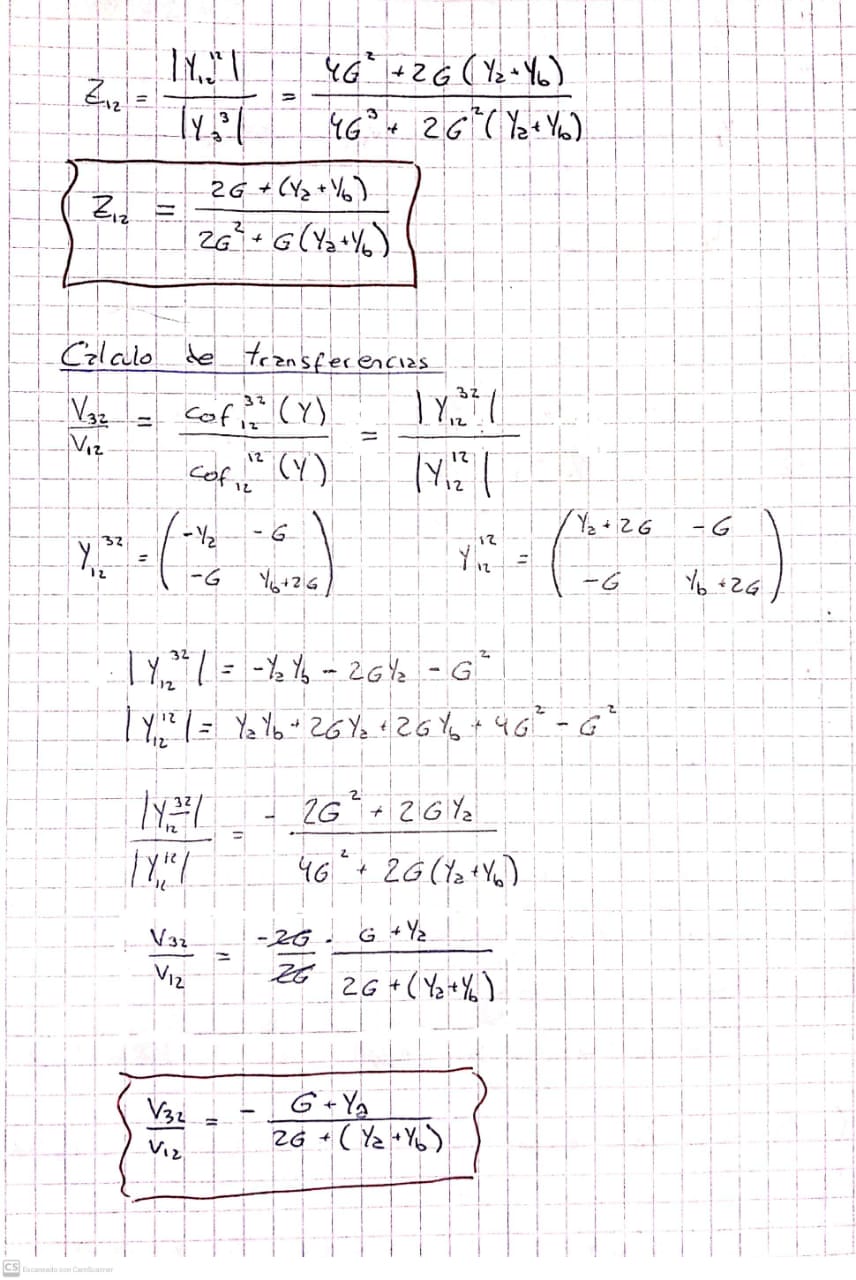 Z₁₂ = |Y₁₂¹²| / |Y₃³| = (4G² + 2G(Y₂+Y₆)) / (4G³ + 2G²(Y₂+Y₆))
Z₁₂ = (2G + (Y₂+Y₆)) / (2G² + G(Y₂+Y₆))
Cálculo de transferencias
V₃₂/V₁₂ = cof₁₂³²(Y) / cof₁₂¹²(Y) = |Y₁₂³²| / |Y₁₂¹²|
Y₁₂³² = (-Y₂ -G; -G Y₆+2G) Y₁₂¹² = (Y₂+2G -G; -G Y₆+2G)
|Y₁₂³²| = -Y₂Y₆ - 2GY₂ - G²
|Y₁₂¹²| = Y₂Y₆ + 2GY₂ + 2GY₆ + 4G² - G²
|Y₁₂³²| / |Y₁₂¹²| = - (2G² + 2GY₂) / (4G² + 2G(Y₂+Y₆))
V₃₂/V₁₂ = -2G/2G · (G + Y₂) / (2G + (Y₂+Y₆))
V₃₂/V₁₂ = - (G + Y₂) / (2G + (Y₂+Y₆))
CS Escaneado con CamScanner